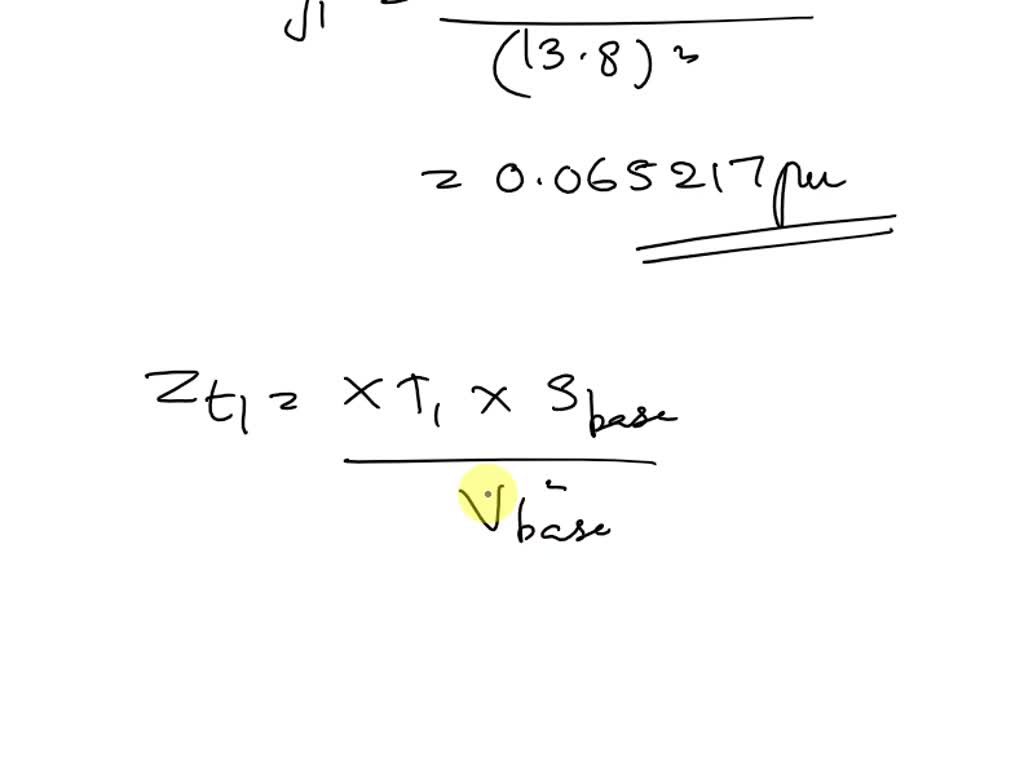 (13.8)²
= 0.065217 pu
Zt1 = XT1 × Sbase
V²base